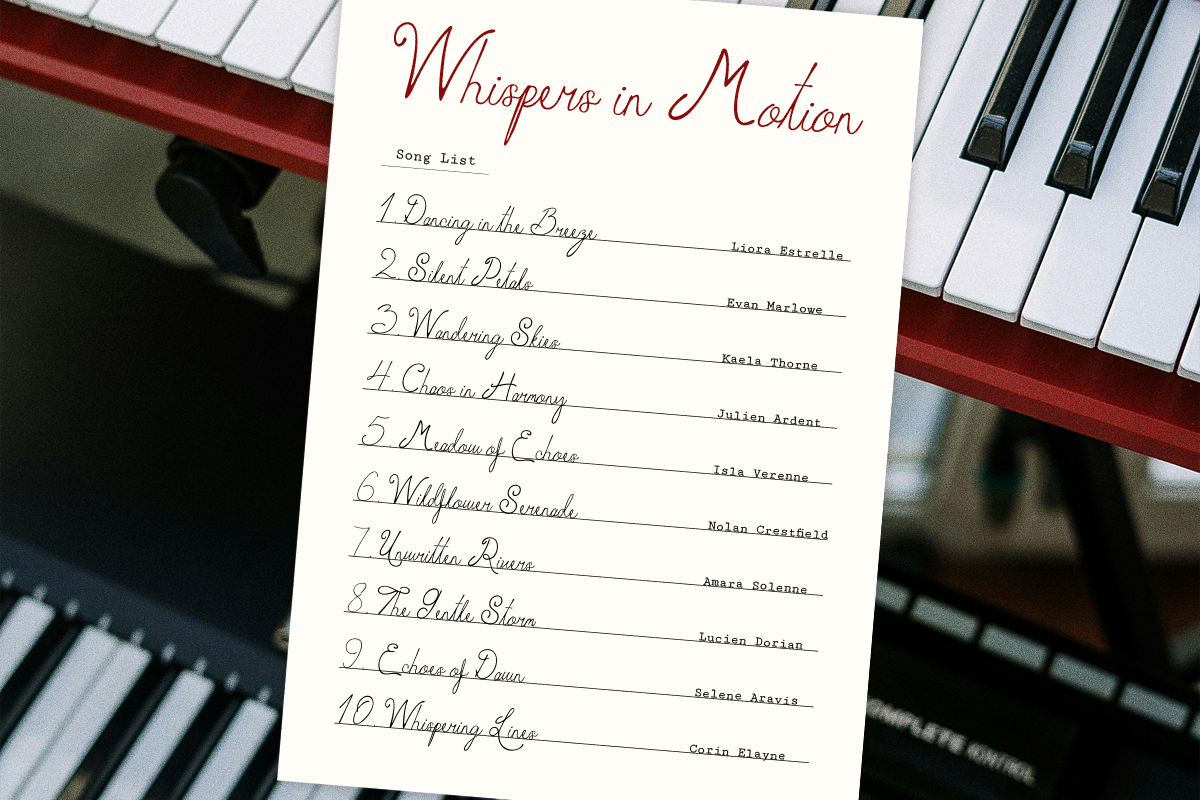 Whispers in Motion
Song List
1. Dancing in the Breeze Liora Estrelle
2. Silent Petals Evan Marlowe
3. Wandering Skies Kaela Thorne
4. Chaos in Harmony Julien Ardent
5. Meadow of Echoes Isla Verenne
6. Wildflower Serenade Nolan Crestfield
7. Unwritten Rivers Amara Solenne
8. The Gentle Storm Lucien Dorian
9. Echoes of Dawn Selene Aravis
10. Whispering Lines Corin Elayne
COMPLETE KONTROL